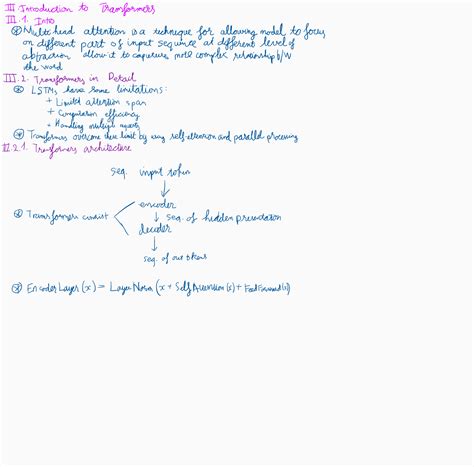 III Introduction to Transformers
III.1. Into
⊛ Multi head attention is a technique for allowing model to focus
on different part of input sequence at different level of
abstraction allow it to capture more complex relationship b/w
the word
III.2. Transformers in Detail
⊛ LSTMs have some limitations:
+ Limited attention span
+ Computation efficiency
+ Handling multiple
⊛ Transformers overcome these limit by using self-attention and parallel processing
III.2.1. Transformers architecture
seq. input token
encoder
⊛ Transformers consist
seq. of hidden
decoder
seq. of out tokens
⊛ Encoder Layer (x) = Layer Norm (x + Self Attention (x) + Feed Forward (x))